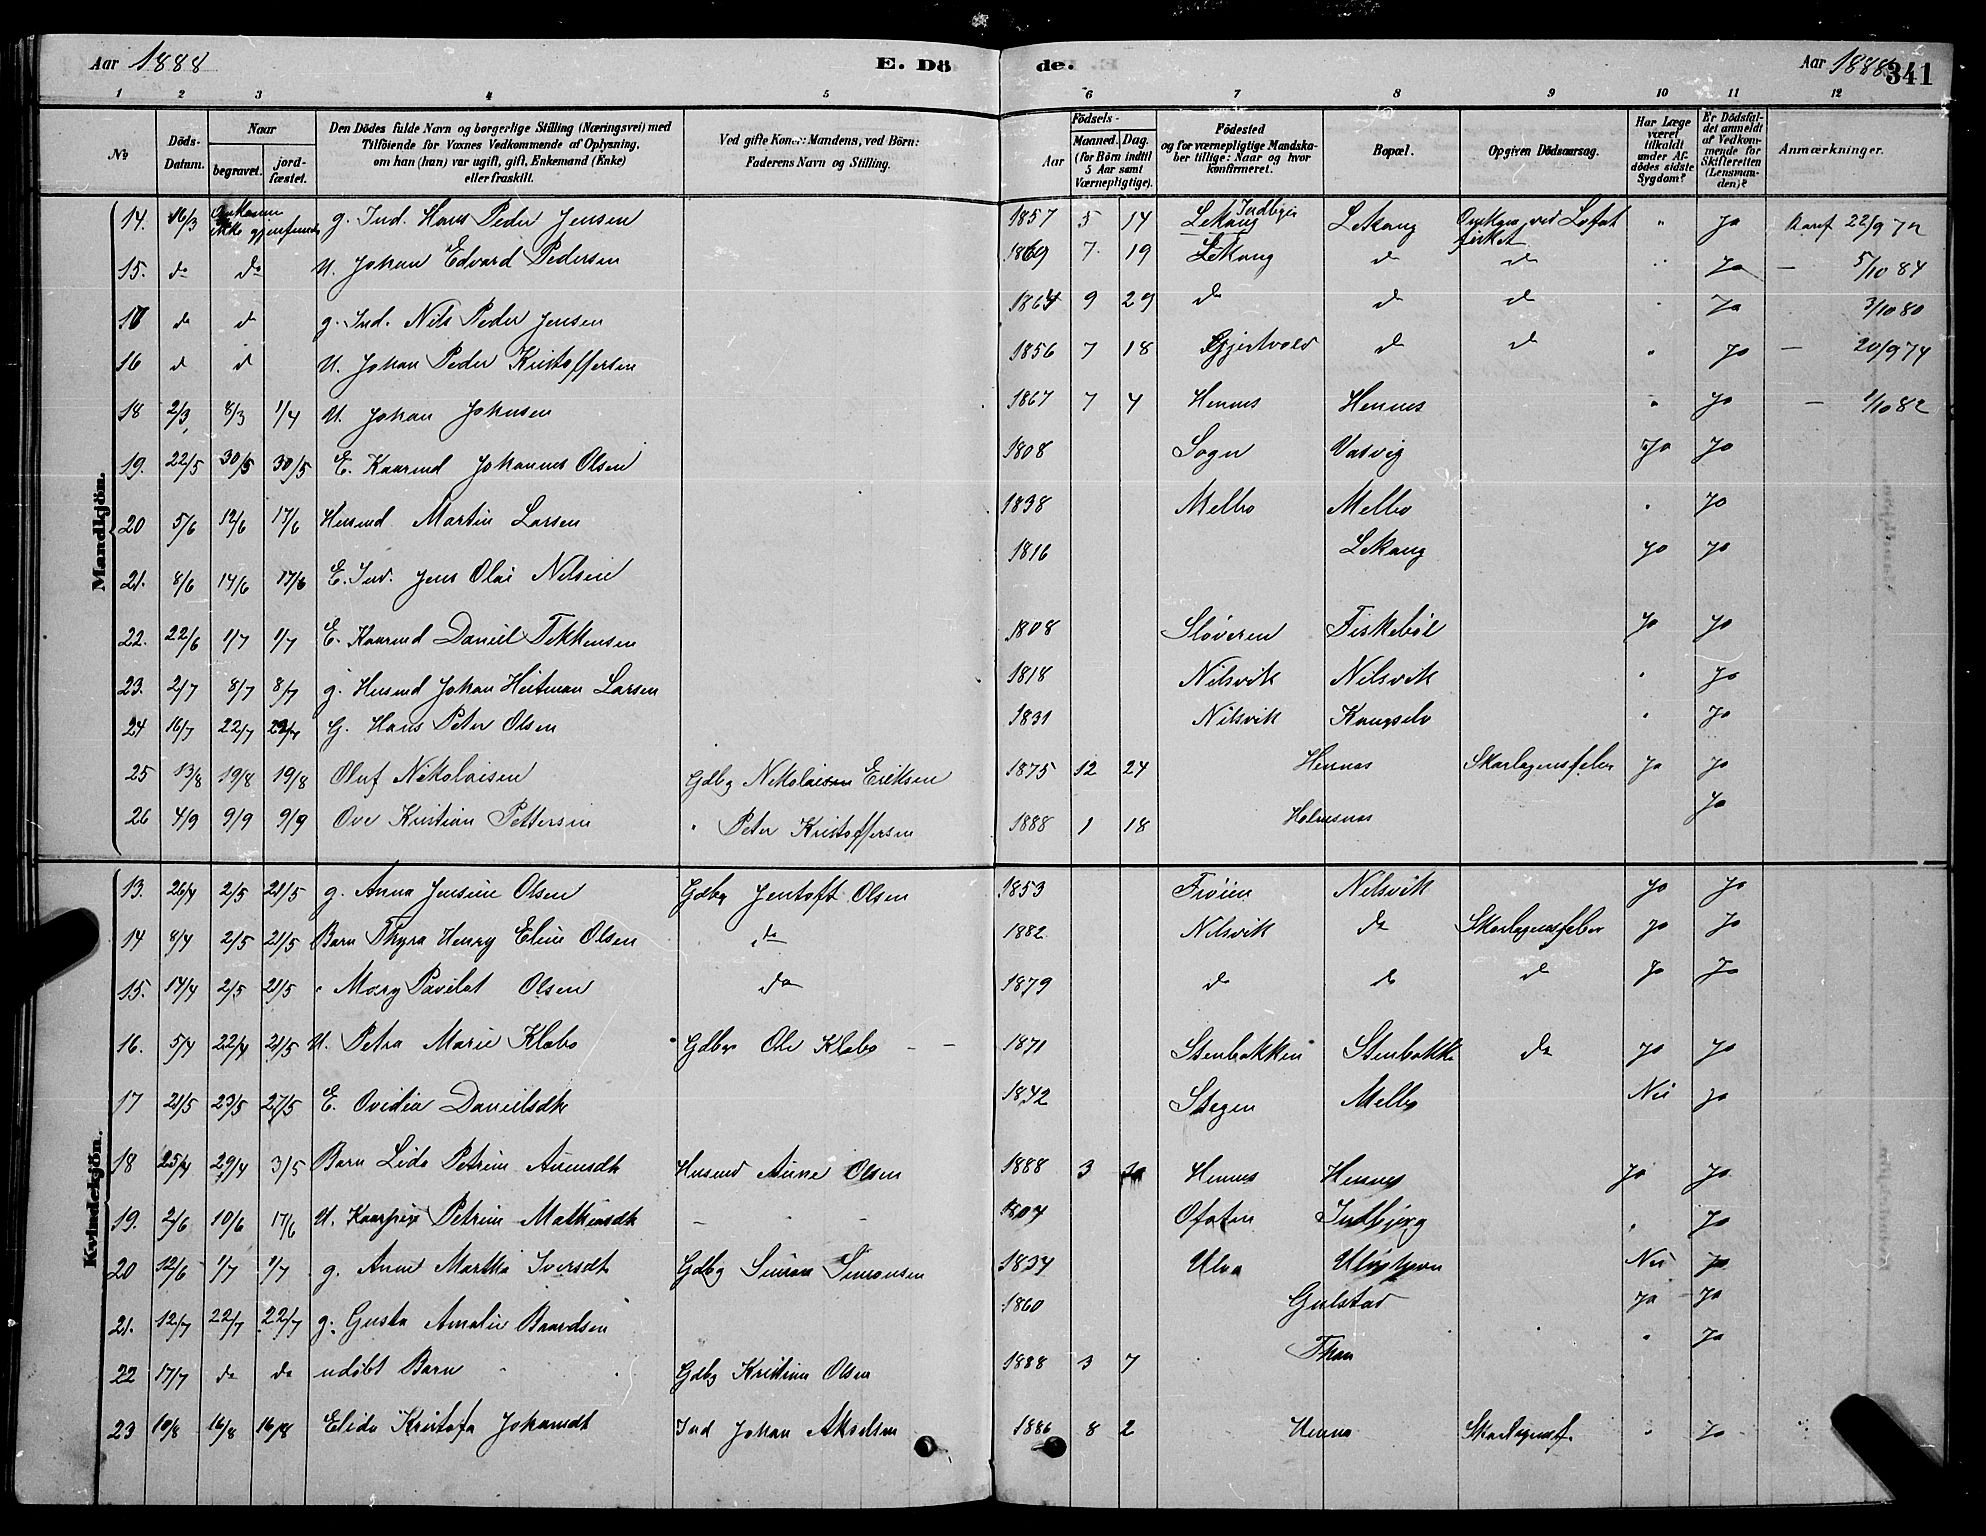 Aar 1888 E. Dö de. Aar 1888 341
1 2 3 4 5 6 7 8 9 10 11 12
No. Döds-Datum. Naar begravet. jord-fæstet. Den Dödes fulde Navn og borgerlige Stilling (Næringsvei) med Tilföiende for Voxnes Vedkommende af Oplysning, om han (hun) var ugift, gift, Enkemand (Enke) eller fraskilt. Ved gifte Koner: Mandens, ved Börn: Faderens Navn og Stilling. Födsels- Aar Maaned. Dag. (for Börn indtil 5 Aar samt Værnepligtige). Födested og for værnepligtige Mandskaber tillige: Naar og hvor konfirmeret. Bopæl. Opgiven Dödsaarsag. Har Læge været tilkaldt under Afdödes sidste Sygdom? Er Dödsfaldet anmeldt af Vedkommende for Skifteretten (Lensmanden)? Anmærkninger.
Mandkjön.
14. 16/3 Omkommen ikke gjenfunden g. Ind. Hans Peder Jensen 1857 5 14 Lekang Lekang Omkom ved Lofotfisket " Ja 22/9 72
15. do do U. Johan Edvard Pedersen 1869 7 19 Lekang do do " Ja — 5/10 84
17 do do g. Ind. Nils Peder Jensen 1864 9 29 do do do " Ja 3/10 80
16 do do U. Johan Peder Kristoffersen 1856 7 18 Gjertvold do do " Ja — 20/9 74
18 2/3 8/3 1/4 U. Johan Johnsen 1867 7 4 Hennes Hennes " Ja — 1/10 82
19. 22/5 30/5 30/5 E. Kaarmd Johannes Olsen 1808 Sogn Vasvig Ja Ja
20 5/6 12/6 17/6 Husmd. Martin Larsen 1838 Melbo Melbo " Ja
21. 8/6 14/6 17/6 E. Ind. Jens Olai Nilsen 1816 Lekang Ja Ja
22. 22/6 1/7 1/7 E. Kaarmd Daniel Tekkensen 1808 Sløveren Fiskebøl Ja Ja
23. 2/7 8/7 8/7 g. Husmd Johan Heitman Larsen 1818 Nilsvik Nilsvik " Ja
24 16/7 22/7 22/7 G. Hans Peter Olsen 1831 Nilsvik Kongselv " Ja
25 13/8 19/8 19/8 Oluf Nikolaisen Gdbg Nikolaisen Eriksen 1875 12 24 Hennes Skarlagensfeber Ja Ja
26 4/9 9/9 9/9 Ove Kristian Pettersen " Peter Kristoffersen 1888 1 18 Holmsnes Ja
Kvindekjön.
13. 26/4 2/5 21/5 g. Anna Jensine Olsen Gdbg Jentoft Olsen 1853 Frøien Nilsvik Ja Ja
14 8/4 2/5 21/5 Barn Thyra Henry Eline Olsen do 1882 Nilsvik do Skarlagensfeber Ja Ja
15. 14/4 2/5 21/5 " Mary Pavelot Olsen do 1879 do do do Ja Ja
16. 5/4 22/4 21/5 U. Petra Marie Klæbo Gdbg Ole Klæbo 1871 Stenbakken Stenbakke do Ja Ja
17 21/5 23/5 27/5 E. Ovidia Danielsdt 1842 Stegen Melbo Nei Ja
18 25/4 29/4 3/5 Barn Lida Petrine Aunesdt Husmd Aune Olsen 1888 3 Hennes Hennes Ja Ja
19. 2/6 10/6 17/6 U. Petrine Mathisdt 1804 Ofoten Indbjerg " Ja
20 12/6 1/7 1/7 g. Anne Martha Iversdt Gdbg Simon Simonsen 1834 Ulvø Nei Ja
21. 12/7 22/7 22/7 g. Gusta Amalie Baardsen 1860 Gulstad Ja Ja
22 17/7 do do udøbt Barn Gdbg Kristian Olsen 1888 3 7 " Ja
23 10/8 16/8 16/8 Elida Kristofa Johansdt Ind Johan Akselsen 1886 8 2 Hennes Skarlagensf. " Ja